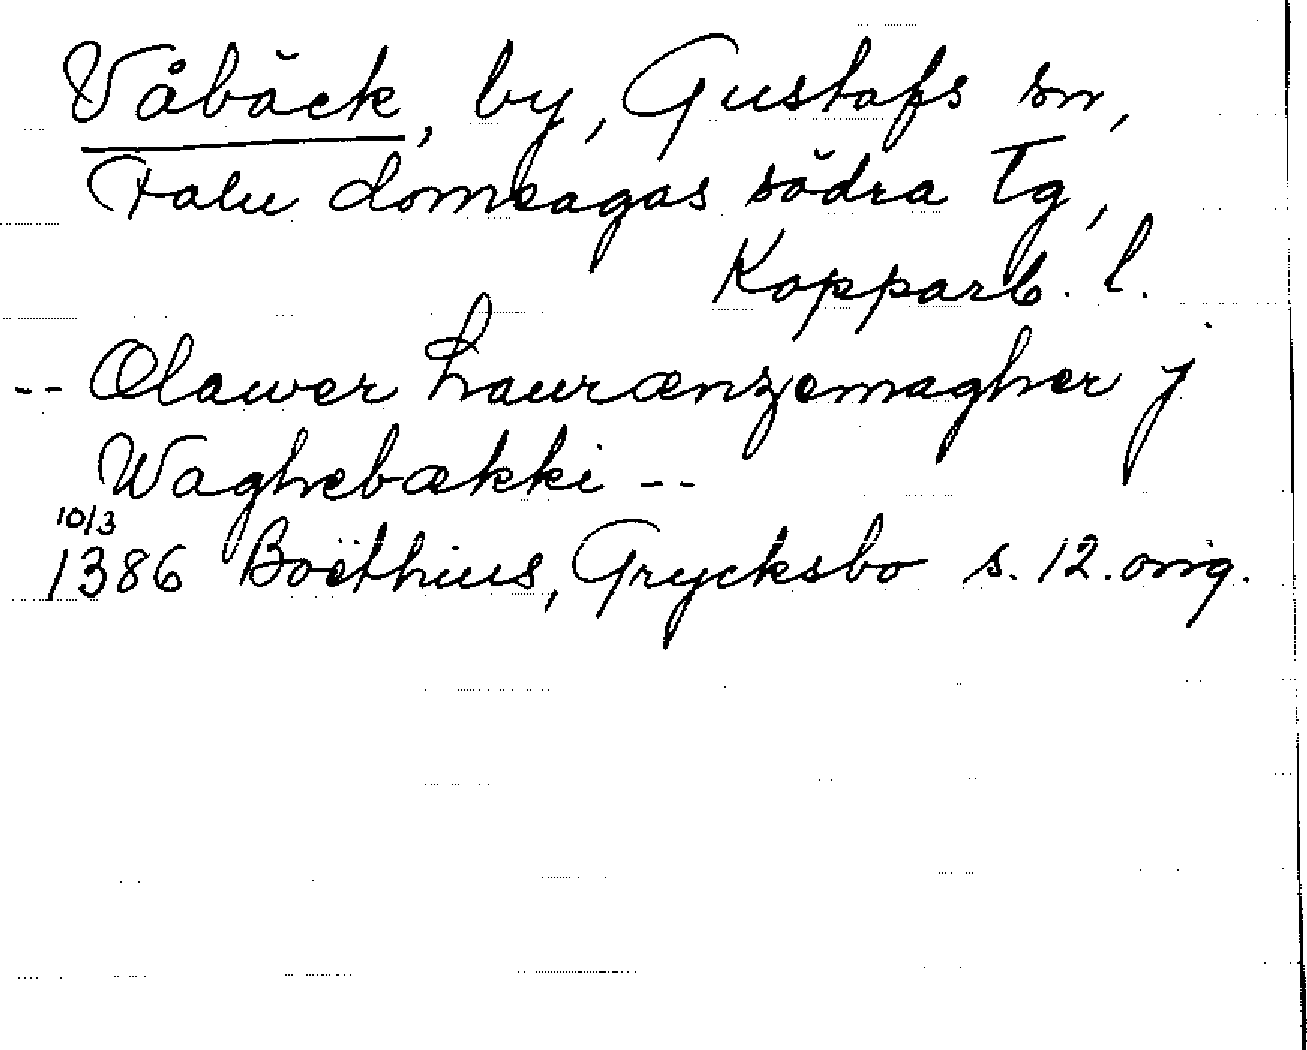 Våbäck, by, Gustafs sn,
Falu domsagas södra tg,
Kopparb. l.
-- Olawer Laurænzemagher j
Waghebækki --
10/3
1386 Boëthius, Grycksbo s. 12. orig.